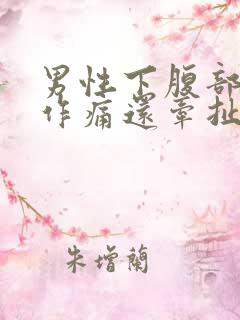 男性下腹部
作痛还牵扯
朱增兰